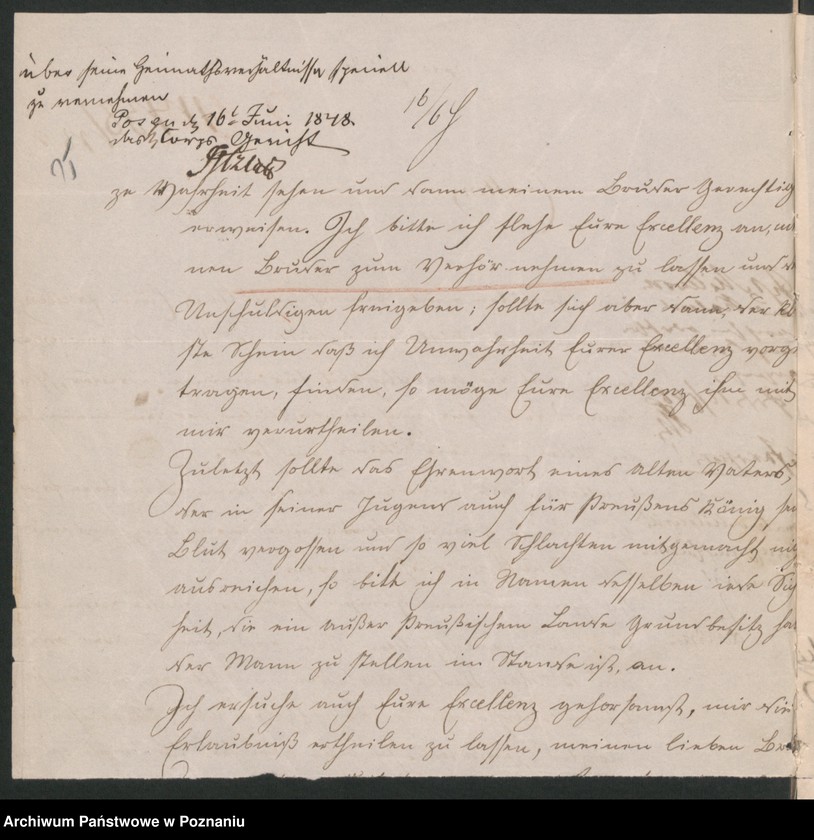 über seine Heimathsverhältnisse speciell
zu vernehmen
Posen d 16t Juni 1848.
das Corps Gericht
16/6
25
ze Wahrheit sehen und dann meinem Bruder Gerechtig
erweisen. Ich bitte ich flehe Eure Excellenz an,
nen Bruder zum Verhör nehmen zu lassen und
Unschuldigen freigeben; sollte sich aber dann, der
ste Schein daß ich Unwahrheit Eurer Excellenz vorge
tragen, finden, so möge Eure Excellenz ihn mit
mir verurtheilen.
Zuletzt sollte das Ehrenwort eines alten Vaters,
der in seiner Jugend auch für Preußens König, sein
Blut vergossen und so viel Schlachten mitgemacht
ausreichen, so bitte ich in Namen desselben jede Sich
heit, die ein außer Preußischem Lande Grundbesitz ha
der Mann zu stellen im Stande ist, an.
Ich ersuche auch Eure Excellenz gehorsamst, mir die
Erlaubniß ertheilen zu lassen, meinen lieben Br
Archiwum Państwowe w Poznaniu